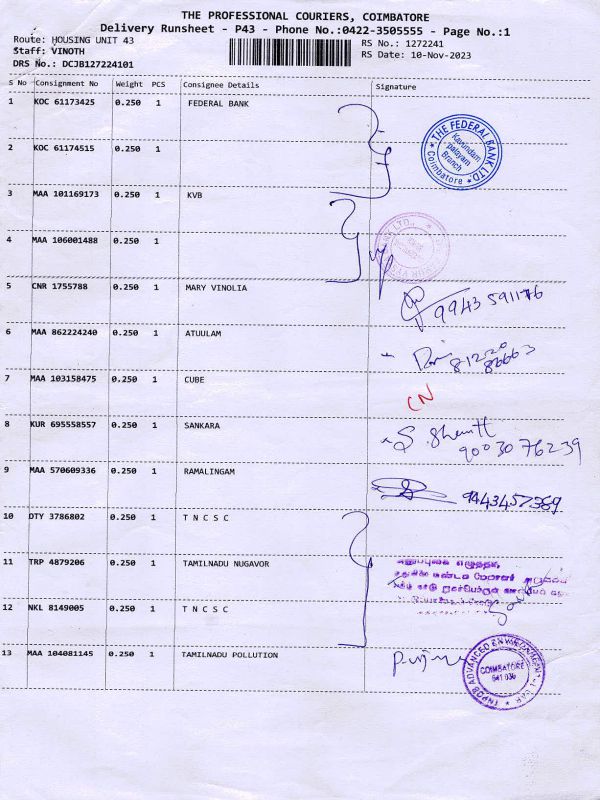 THE PROFESSIONAL COURIERS, COIMBATORE
Delivery Runsheet - P43 - Phone No.:0422-3505555 - Page No.:1
Route: HOUSING UNIT 43
RS No.: 1272241
Staff: VINOTH
RS Date: 10-Nov-2023
DRS No.: DCJB127224101
S No Consignment No Weight PCS Consignee Details Signature
1 KOC 61173425 0.250 1 FEDERAL BANK
THE FEDERAL BANK LTD. Kavundam palayam Branch Coimbatore
2 KOC 61174515 0.250 1
3 MAA 101169173 0.250 1 KVB
4 MAA 106001488 0.250 1
5 CNR 1755788 0.250 1 MARY VINOLIA
6 MAA 862224240 0.250 1 ATUULAM
81220
86663
7 MAA 103158475 0.250 1 CUBE
CN
8 KUR 695558557 0.250 1 SANKARA
90030 76239
9 MAA 570609336 0.250 1 RAMALINGAM
9443457369
10 OTY 3786802 0.250 1 T N C S C
11 TRP 4879206 0.250 1 TAMILNADU NUGAVOR
12 NKL 8149005 0.250 1 T N C S C
13 MAA 104081145 0.250 1 TAMILNADU POLLUTION
COIMBATORE
641 036